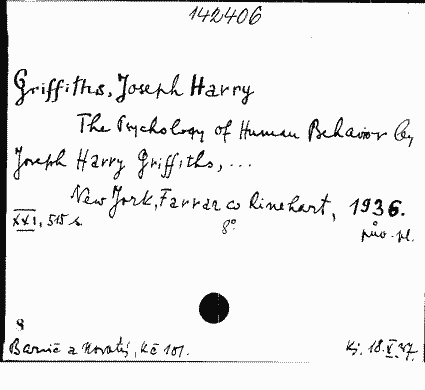 142406
Griffiths, Joseph Harry
The Psychology of Human Behavior by
Joseph Harry Griffiths, ...
New York, Farrar co Rinehart, 1936.
XXI, 515 s. 8° pův. pl.
8
Barvič a Novotný, Kč 101.
Kj. 18.X.47.